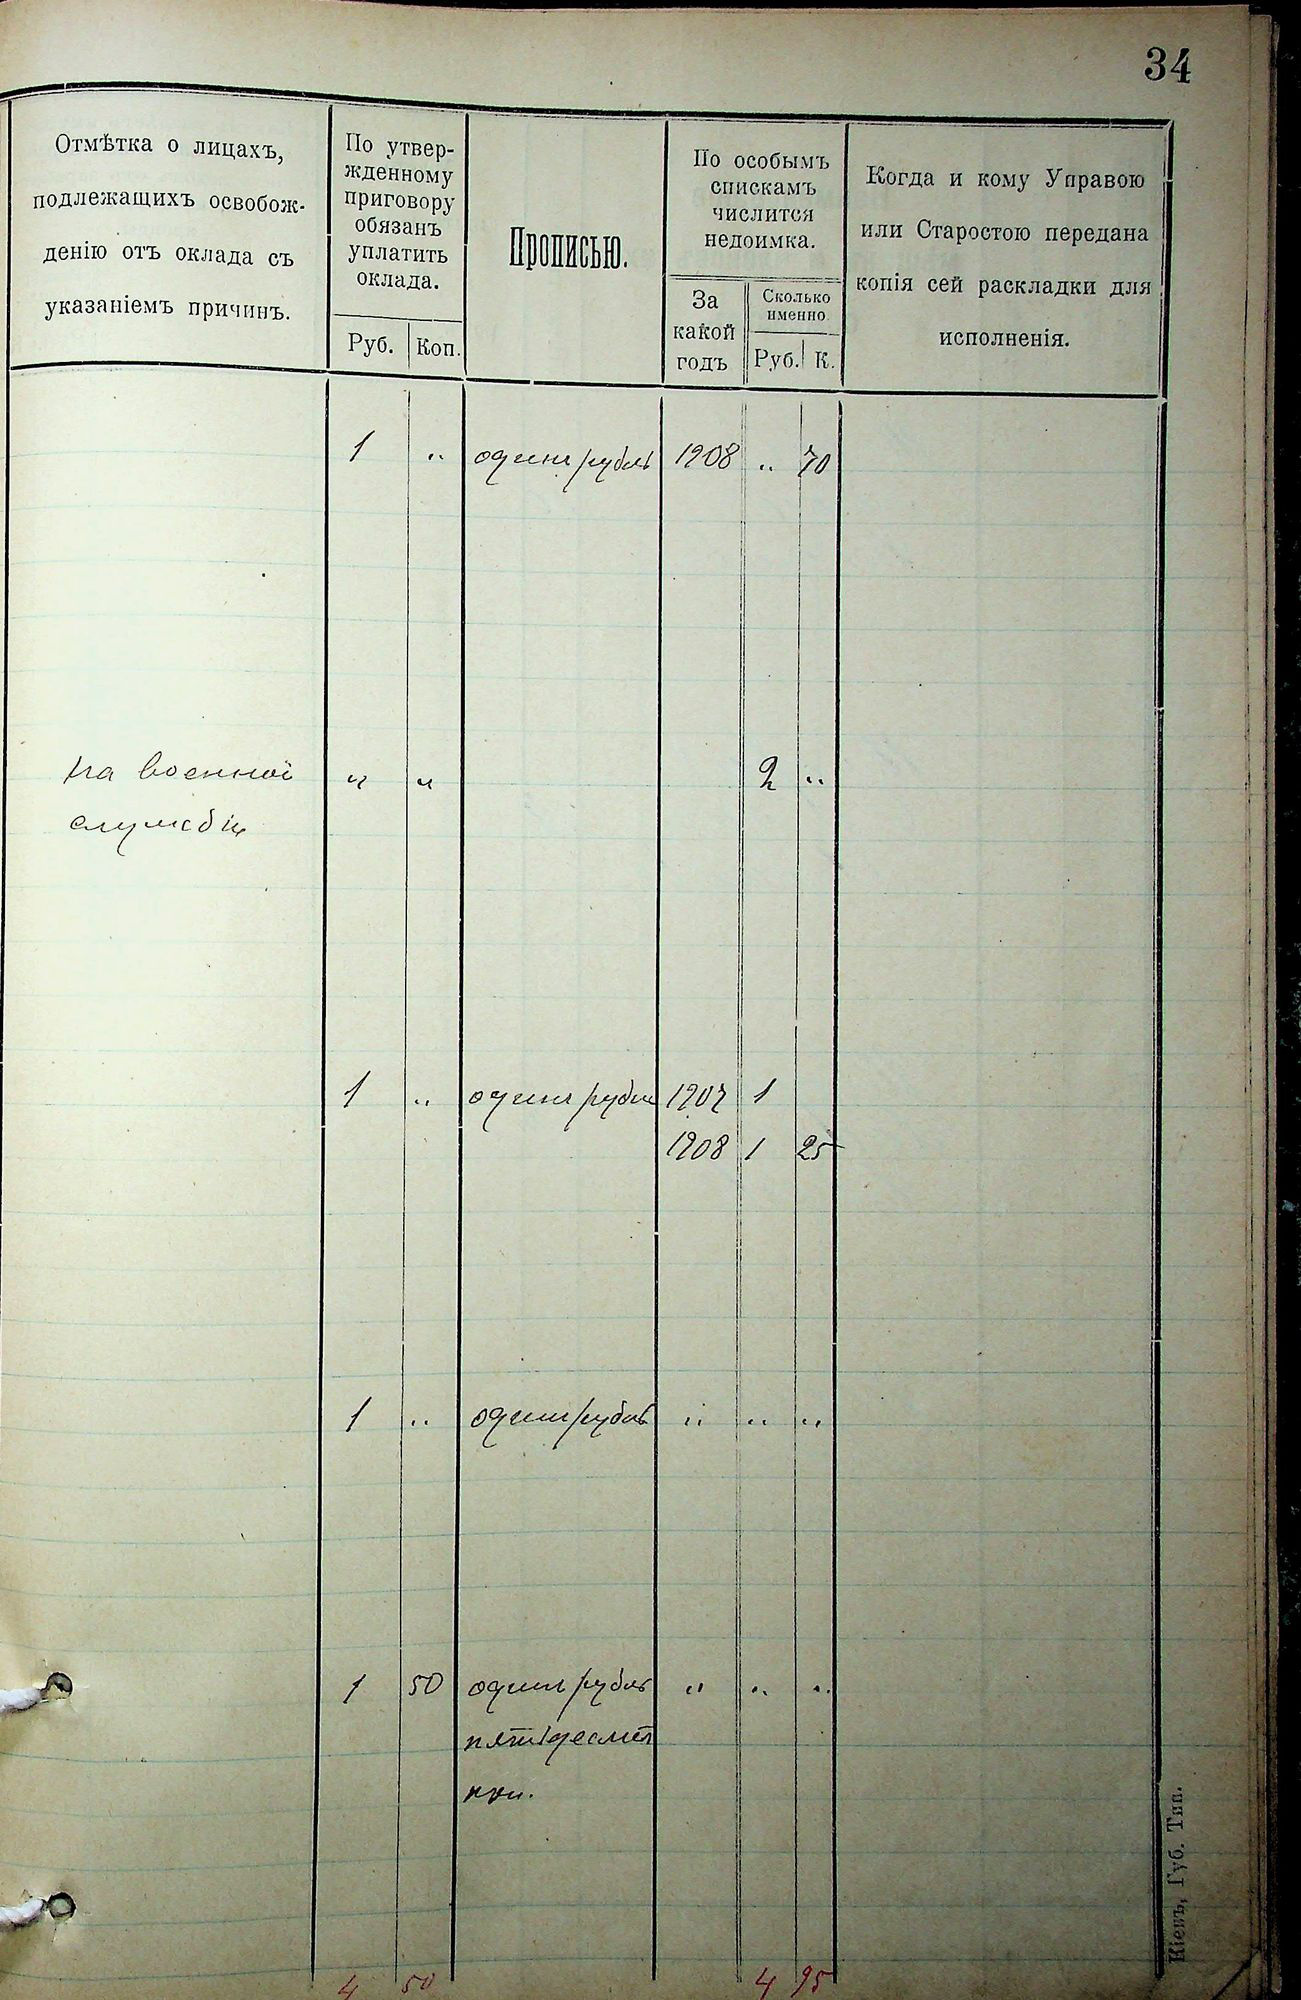 34
Отмѣтка о лицахъ,
подлежащихъ освобож-
денію отъ оклада съ
указаніемъ причинъ.
По утвер-
жденному
приговору
обязанъ
уплатить
оклада.
Руб. Коп.
Прописью.
По особымъ
спискамъ
числится
недоимка.
За
какой
годъ
Сколько
именно
Руб. К.
Когда и кому Управою
или Старостою передана
копія сей раскладки для
исполненія.
1 " одинъ рубль 1908 " 70
на военной " " 2 "
службѣ
1 " одинъ рубль 1907 1
1908 1 25
1 " одинъ рубль " " "
1 50 одинъ рубль " " "
пятьдесятъ
коп.
4 50 4 95
Кіевъ, Губ. Тип.